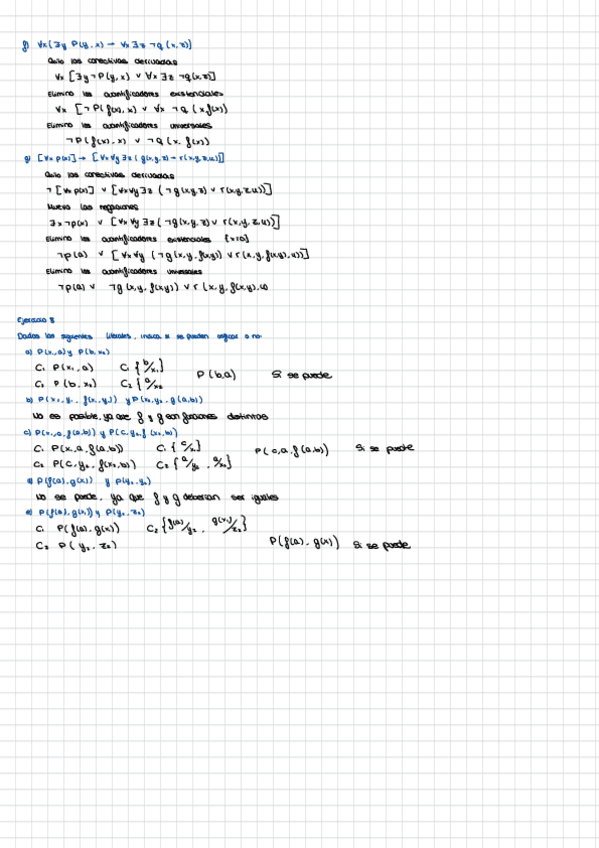 f) ∀x(∃y P(y,x) → ∀x ∃z ¬Q(x,z)]
Quito las conectivas derivadas
∀x [∃y ¬P(y,x) ∨ ∀x ∃z ¬Q(x,z)]
Elimino los cuantificadores existenciales
∀x [¬P(f(x),x) ∨ ∀x ¬Q(x,f(x))
Elimino los cuantificadores universales
¬P(f(x),x) ∨ ¬Q(x,f(x))
g) [∀x p(x)] → [∀x ∀y ∃z (g(x,y,z) → r(x,y,z,u))]
Quito las conectivas derivadas
¬[∀x p(x)] ∨ [∀x∀y ∃z (¬g(x,y,z) ∨ r(x,y,z,u))]
Muevo las negaciones
∃x ¬p(x) ∨ [∀x ∀y ∃z (¬g(x,y,z) ∨ r(x,y,z,u))]
Elimino los cuantificadores existenciales {x=a}
¬p(a) ∨ [∀x∀y (¬g(x,y,f(x,y)) ∨ r(x,y,f(x,y),u))]
Elimino los cuantificadores universales
¬p(a) ∨ ¬g(x,y,f(x,y)) ∨ r(x,y,f(x,y),u)
Ejercicio 8
Dados los siguientes literales, indica si se pueden unificar o no.
a) P(x₁,a) y P(b,x₂)
C₁ P(x₁,a) C₁ {b/x₁} P(b,a) Si se puede
C₂ P(b,x₂) C₂ {a/x₂
b) P(x₁,y₁,f(x₁,y₁)) y P(x₂,y₂,g(a,b))
No es posible, ya que f y g son funciones distintas
c) P(x₁,a,f(a,b)) y P(c,y₂,f(x₂,b))
C₁ P(x,a,f(a,b)) C₁ {c/x₁} P(c,a,f(a,b)) Si se puede
C₂ P(c,y₂,f(x₂,b)) C₂ {a/y₂, a/x₂}
d) P(f(a),g(x)) y P(y₂,y₂)
No se puede, ya que f y g deberian ser iguales
e) P(f(a),g(x₁)) y P(y₂,z₂)
C₁ P(f(a),g(x₁)) C₂ {f(a)/y₂, g(x₁)/z₂}
C₂ P(y₂,z₂) P(f(a),g(x)) Si se puede